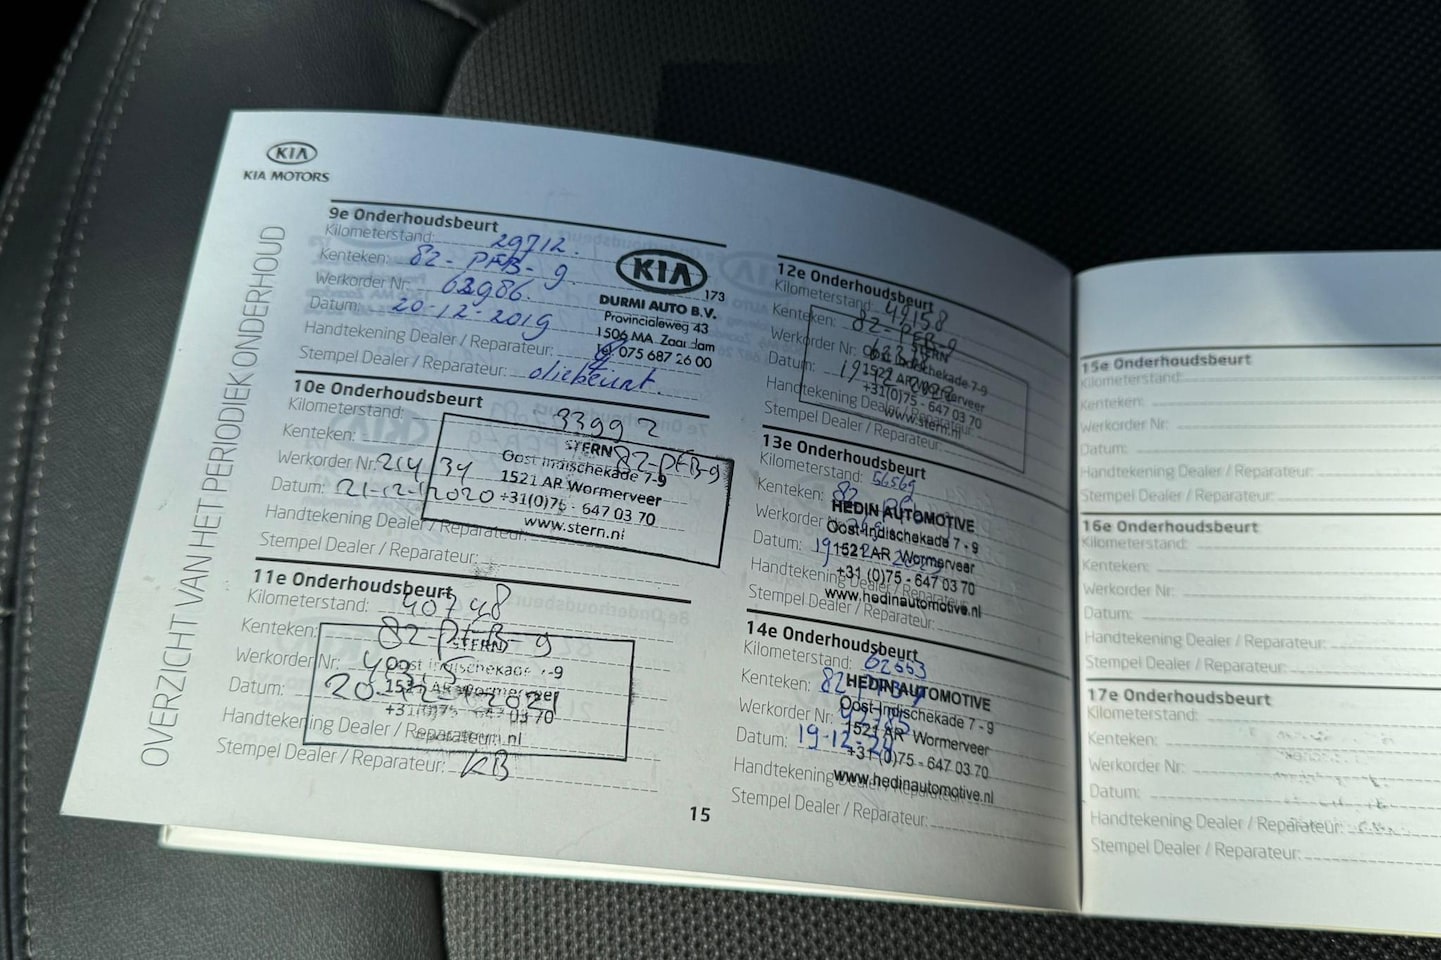 KIA
KIA MOTORS
OVERZICHT VAN HET PERIODIEK ONDERHOUD
9e Onderhoudsbeurt
Kilometerstand: 29712.
Kenteken: 82-PFB-9
Werkorder Nr: 62986.
Datum: 20-12-2019
Handtekening Dealer / Reparateur:
Stempel Dealer / Reparateur: oliebeurt.
KIA
173
DURMI AUTO B.V.
Provincialeweg 43
1506 MA Zaandam
Tel. 075 687 26 00
10e Onderhoudsbeurt
Kilometerstand: 33992
Kenteken: 82-PFB-9
Werkorder Nr: 21434
Datum: 21-12-2020
Handtekening Dealer / Reparateur:
Stempel Dealer / Reparateur:
STERN
Oost Indischekade 7-9
1521 AR Wormerveer
+31(0)75 - 647 03 70
www.stern.nl
11e Onderhoudsbeurt
Kilometerstand: 40748
Kenteken: 82-PFB-9
Werkorder Nr:
Datum: 20 2021
Handtekening Dealer / Reparateur:
Stempel Dealer / Reparateur: KB
STERN
Oost Indischekade 7-9
1521 AR Wormerveer
+31(0)75 - 647 03 70
12e Onderhoudsbeurt
Kilometerstand: 49158
Kenteken: 82-PFB-9
Werkorder Nr:
Datum: 19 2022
Handtekening Dealer / Reparateur:
Stempel Dealer / Reparateur:
STERN
Oost Indischekade 7-9
1521 AR Wormerveer
+31(0)75 - 647 03 70
www.stern.nl
13e Onderhoudsbeurt
Kilometerstand: 56569
Kenteken: 82
Werkorder Nr:
Datum: 19
Handtekening Dealer / Reparateur:
Stempel Dealer / Reparateur:
HEDIN AUTOMOTIVE
Oost-Indischekade 7 - 9
1521 AR Wormerveer
+31 (0)75 - 647 03 70
www.hedinautomotive.nl
14e Onderhoudsbeurt
Kilometerstand: 62553
Kenteken: 82
Werkorder Nr:
Datum: 19-12-24
Handtekening Dealer / Reparateur:
Stempel Dealer / Reparateur:
HEDIN AUTOMOTIVE
Oost-Indischekade 7 - 9
1521 AR Wormerveer
+31 (0)75 - 647 03 70
www.hedinautomotive.nl
15
15e Onderhoudsbeurt
Kilometerstand:
Kenteken:
Werkorder Nr:
Datum:
Handtekening Dealer / Reparateur:
Stempel Dealer / Reparateur:
16e Onderhoudsbeurt
Kilometerstand:
Kenteken:
Werkorder Nr:
Datum:
Handtekening Dealer / Reparateur:
Stempel Dealer / Reparateur:
17e Onderhoudsbeurt
Kilometerstand:
Kenteken:
Werkorder Nr:
Datum:
Handtekening Dealer / Reparateur:
Stempel Dealer / Reparateur: